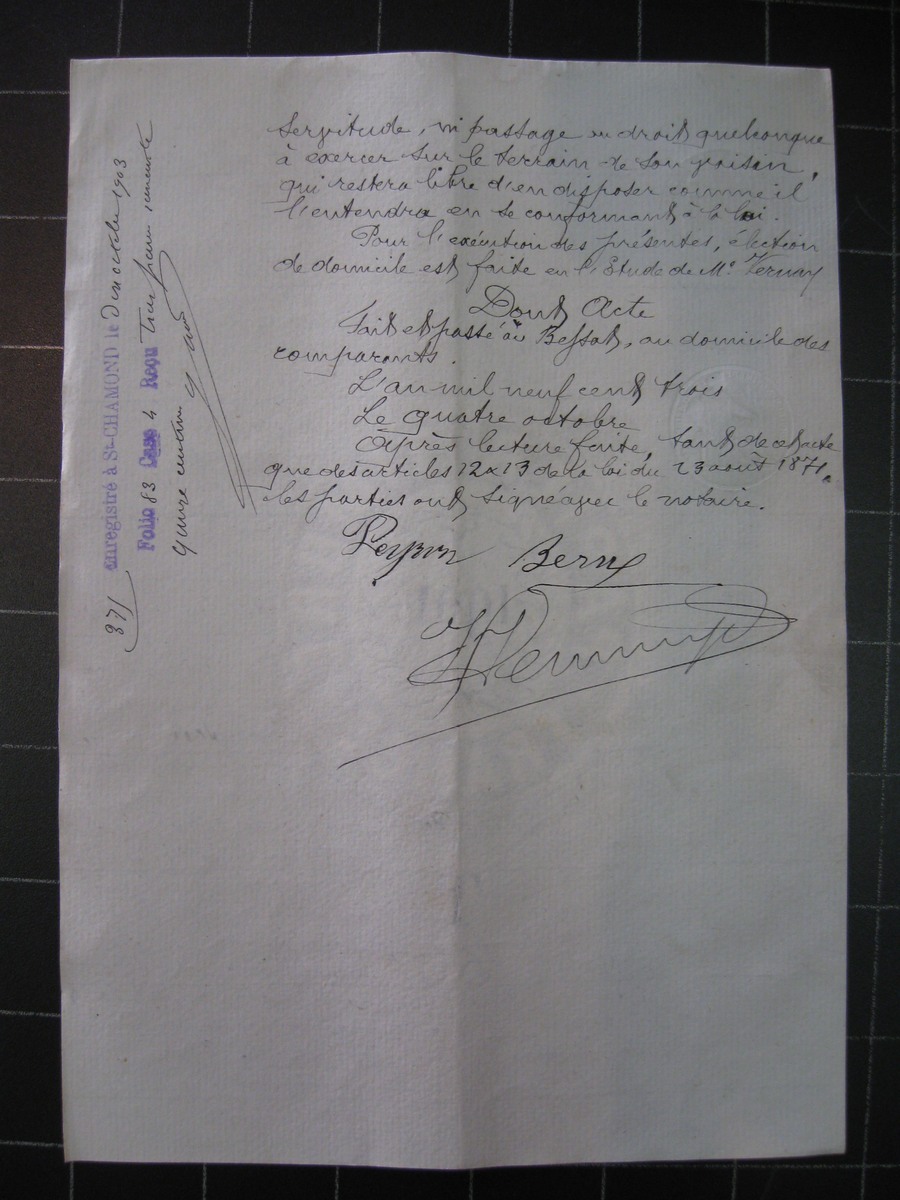 servitude, ni passage ou droit quelconque
à exercer sur le terrain de son voisin,
qui restera libre d'en disposer comme il
l'entendra en se conformant à la loi.
Pour l'exécution des présentes, élection
de domicile est faite en l'Etude de Me Vernay
Dont Acte
Fait et passé au Bessat, au domicile des
comparants.
L'an mil neuf cent trois
Le quatre octobre
Après lecture faite, tant de cet acte
que des articles 12 & 13 de la loi du 23 août 1871,
les parties ont signé avec le notaire.
Peyron Berne
enregistré à St-CHAMOND le Dix octobre 1903
Folio 83 Case 4 Reçu trois francs
quinze centimes